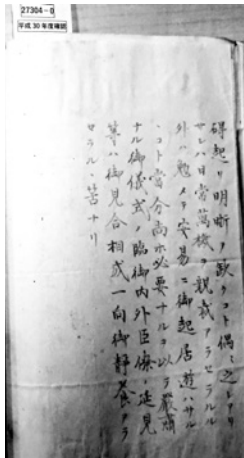 27304-0
平成30年度確認
碍起リ明晰ヲ欽クコト偶〻之レアリ
サレハ日常萬機ヲ親裁アラセラルル
外ハ勉メテ安易ニ御起居遊ハサル
ヽコト當分尚ホ必要ナルヲ以テ嚴肅
ナル御儀式ノ臨御内外臣僚ノ延見
等ハ御見合相成一向御靜養アラ
セラルヽ筈ナリ